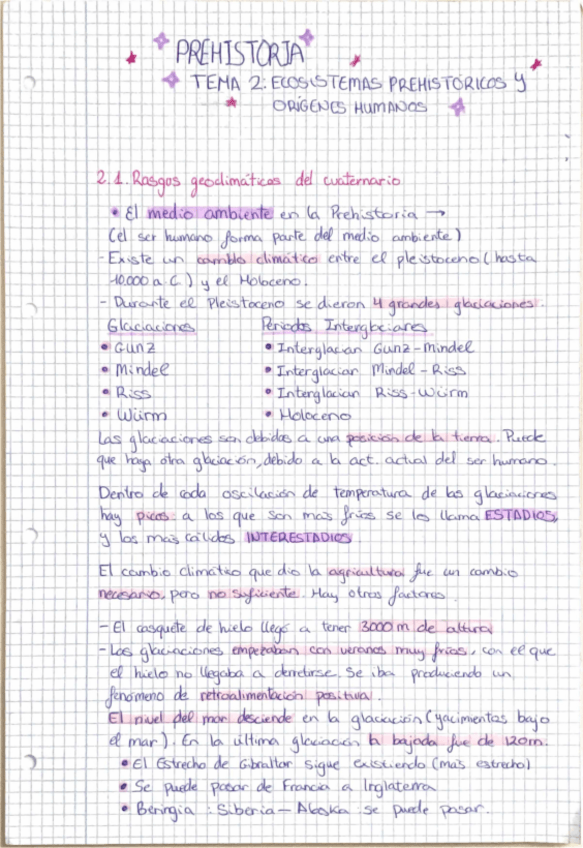 PREHISTORIA
TEMA 2: ECOSISTEMAS PREHISTÓRICOS Y
ORÍGENES HUMANOS
2.1. Rasgos geoclimáticos del cuaternario
• El medio ambiente en la Prehistoria →
(el ser humano forma parte del medio ambiente)
- Existe un cambio climático entre el pleistoceno (hasta
10.000 a C.) y el Holoceno.
- Durante el Pleistoceno se dieron 4 grandes glaciaciones.
Glaciaciones Periodos Interglaciares
• Gunz • Interglaciar Gunz-Mindel
• Mindel • Interglaciar Mindel-Riss
• Riss • Interglaciar Riss-Würm
• Würm • Holoceno
Las glaciaciones son debidas a una posición de la tierra. Puede
que haya otra glaciación, debido a la act. actual del ser humano.
Dentro de cada oscilación de temperatura de las glaciaciones
hay picos: a los que son mas fríos se les llama ESTADIOS,
y los mas cálidos INTERESTADIOS
El cambio climático que dio la agricultura fue un cambio
necesario, pero no suficiente. Hay otros factores.
- El casquete de hielo llegó a tener 3000 m de altura
- Las glaciaciones empezaban con veranos muy fríos, con el que
el hielo no llegaba a derretirse. Se iba produciendo un
fenómeno de retroalimentación positiva.
El nivel del mar desciende en la glaciación (yacimientos bajo
el mar). En la última glaciación la bajada fue de 120m.
• El Estrecho de Gibraltar sigue existiendo (más estrecho)
• Se puede pasar de Francia a Inglaterra
• Beringia: Siberia - Alaska se puede pasar.